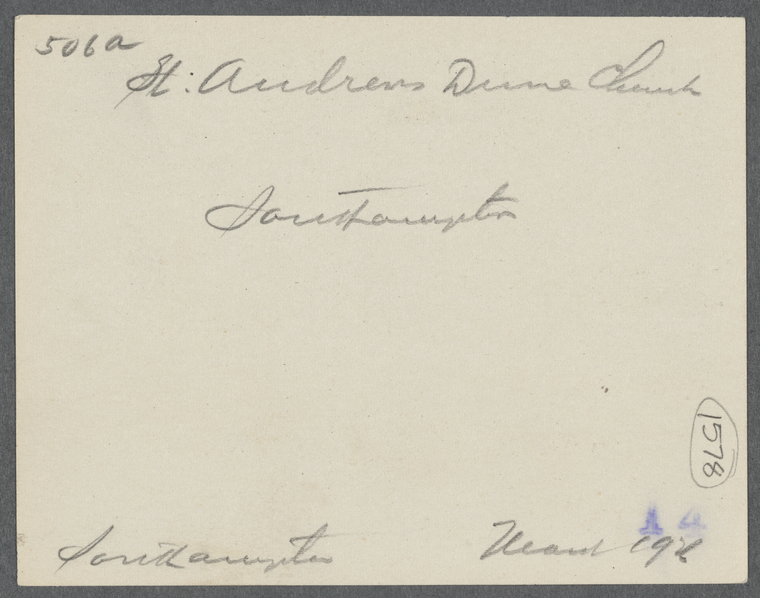 506a
St. Andrews Dune Church
Southampton
1578
14
Southampton